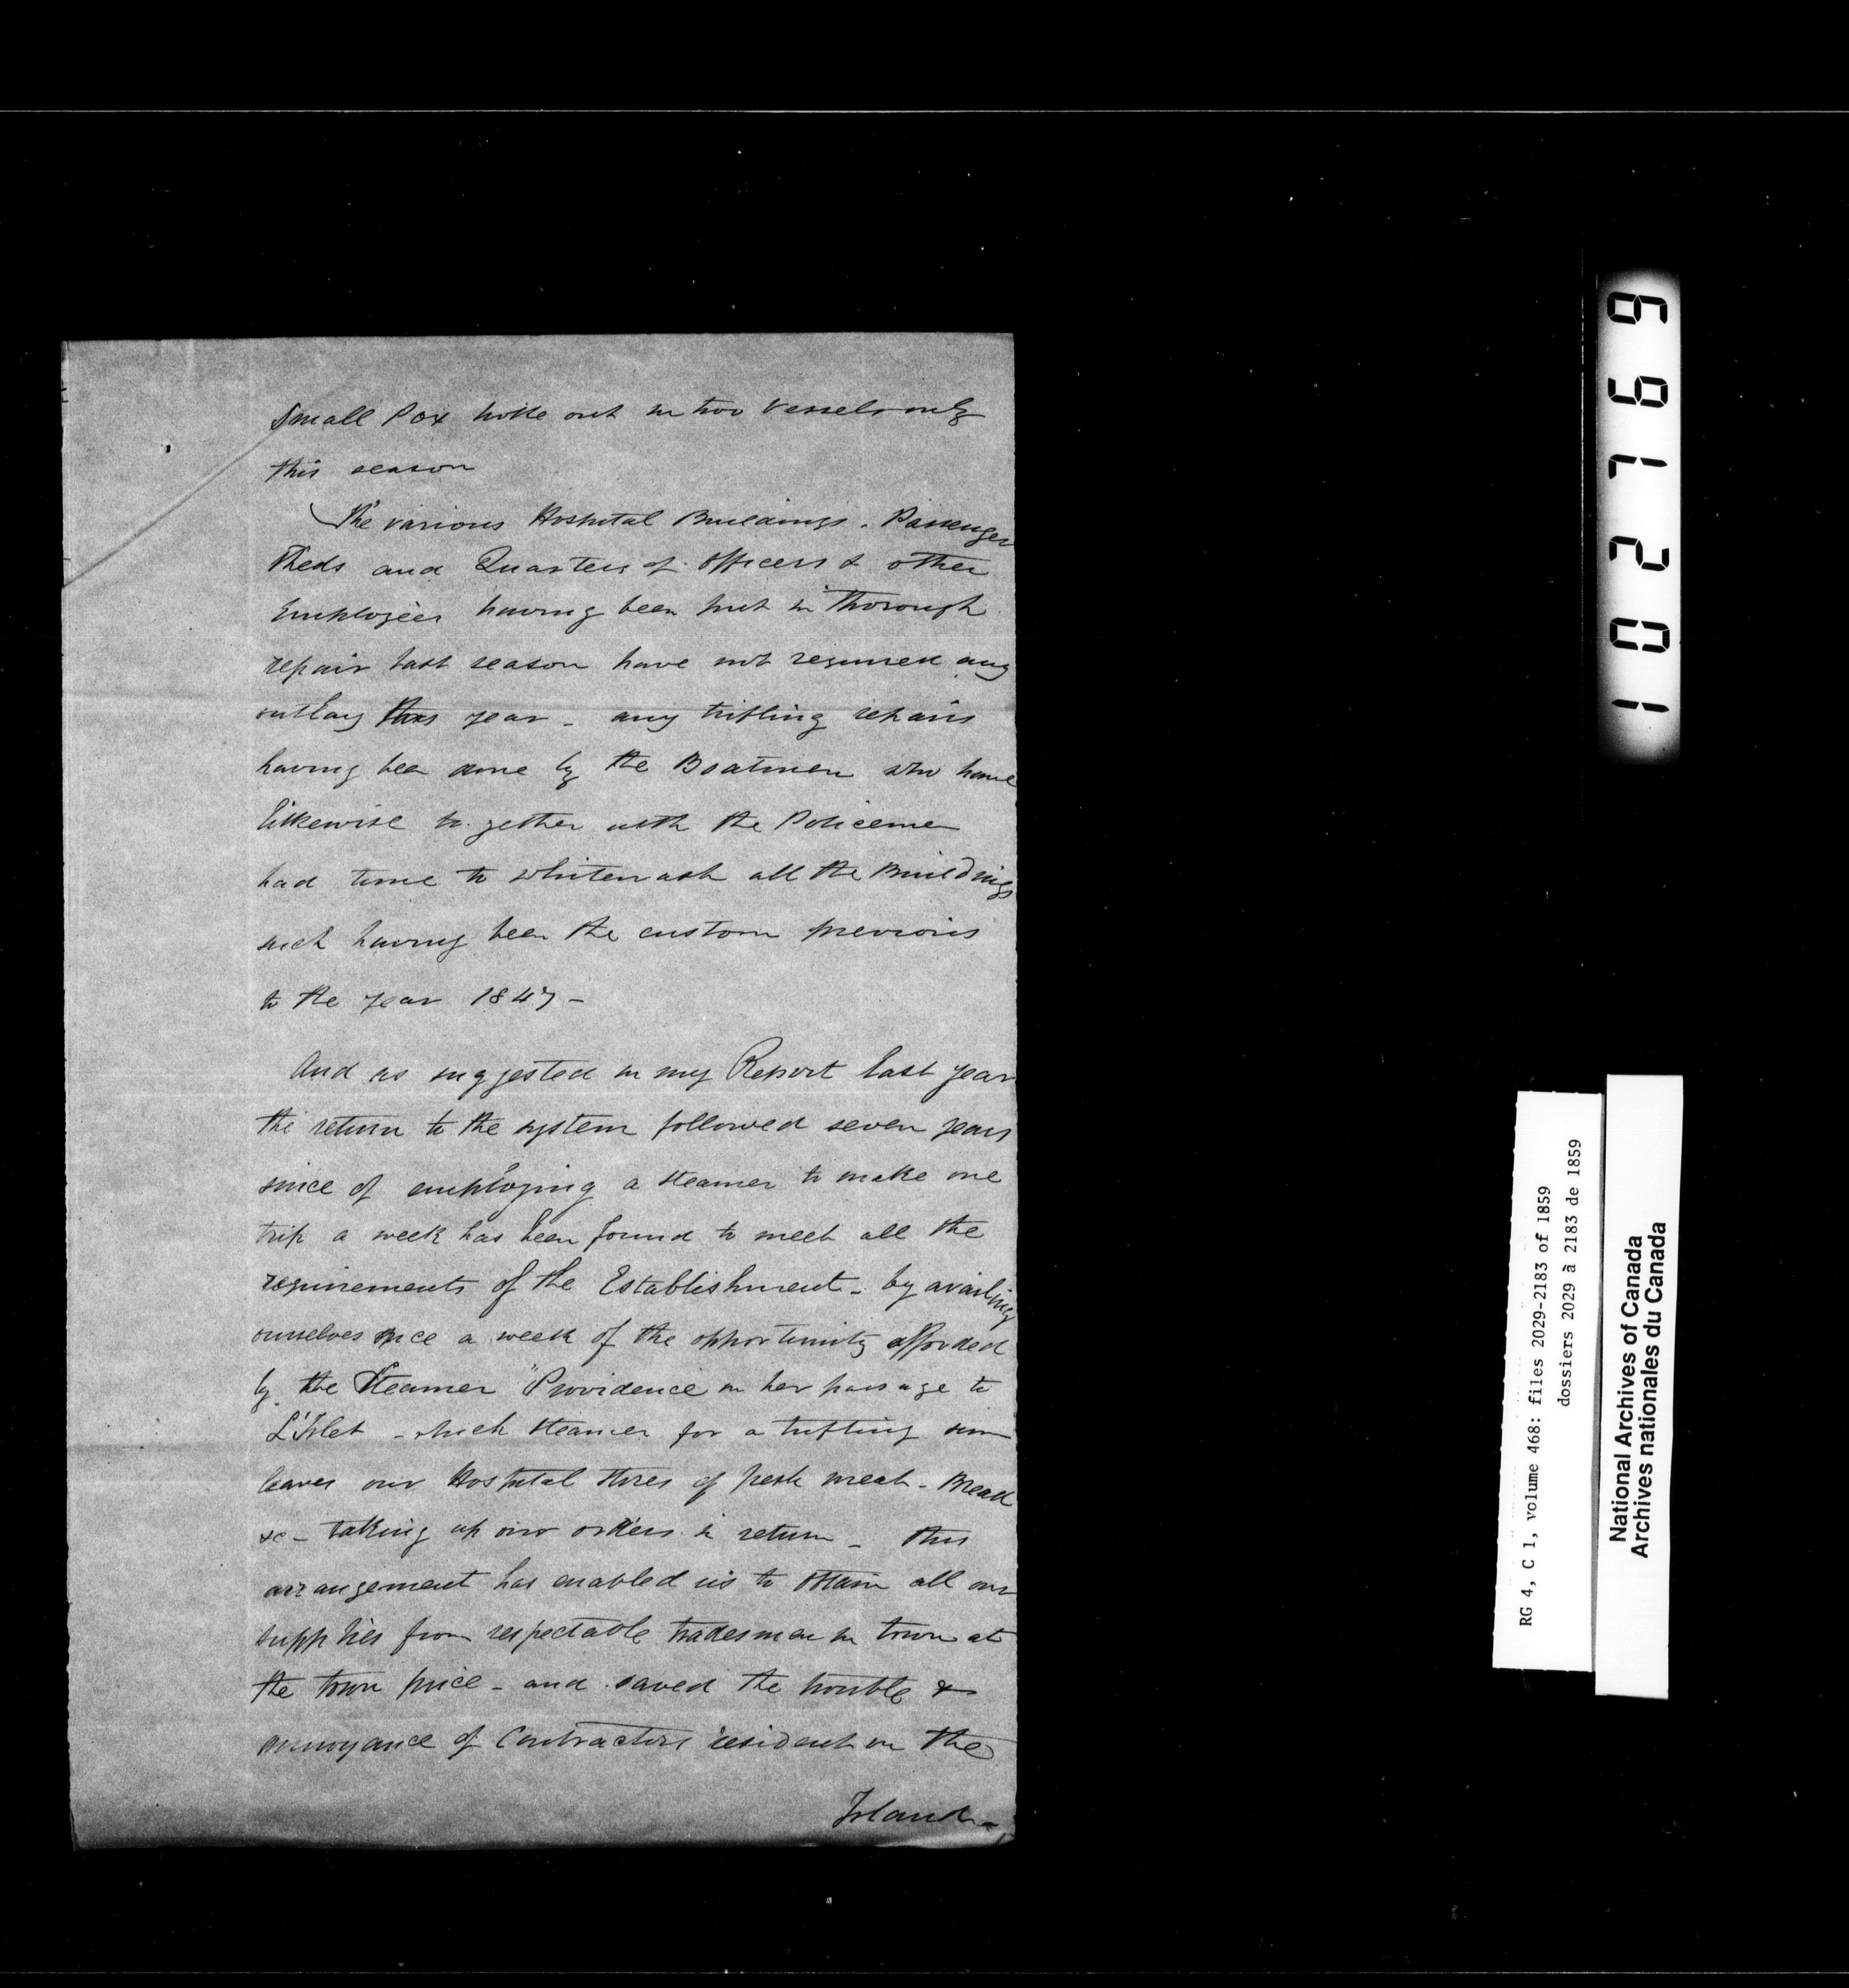 Small Pox broke out in two Vessels only
this season
The various Hospital Buildings - Passenger
Sheds and Quarters of Officers & other
Employées having been put in thorough
repair last season have not required any
outlay this year - any trifling repairs
having been done by the Boatmen who have
likewise to gether with the Policemen
had time to whitewash all the Buildings
such having been the custom previous
to the year 1847 -
And as suggested in my Report last year
the return to the system followed seven years
since of employing a steamer to make one
trip a week has been found to meet all the
requirements of the Establishment - by availing
ourselves once a week of the opportunity afforded
by the Steamer "Providence in her passage to
L'Islet - which steamer for a trifling sum
leaves our Hospital stores of fresh meat - Bread
&c - taking up our orders in return - This
arrangement has enabled us to obtain all our
supplies from respectable tradesmen in town at
the town price - and saved the trouble &
annoyance of Contractors resident on the
Island -
102769
RG 4, C 1, volume 468: files 2029-2183 of 1859
dossiers 2029 à 2183 de 1859
National Archives of Canada
Archives nationales du Canada